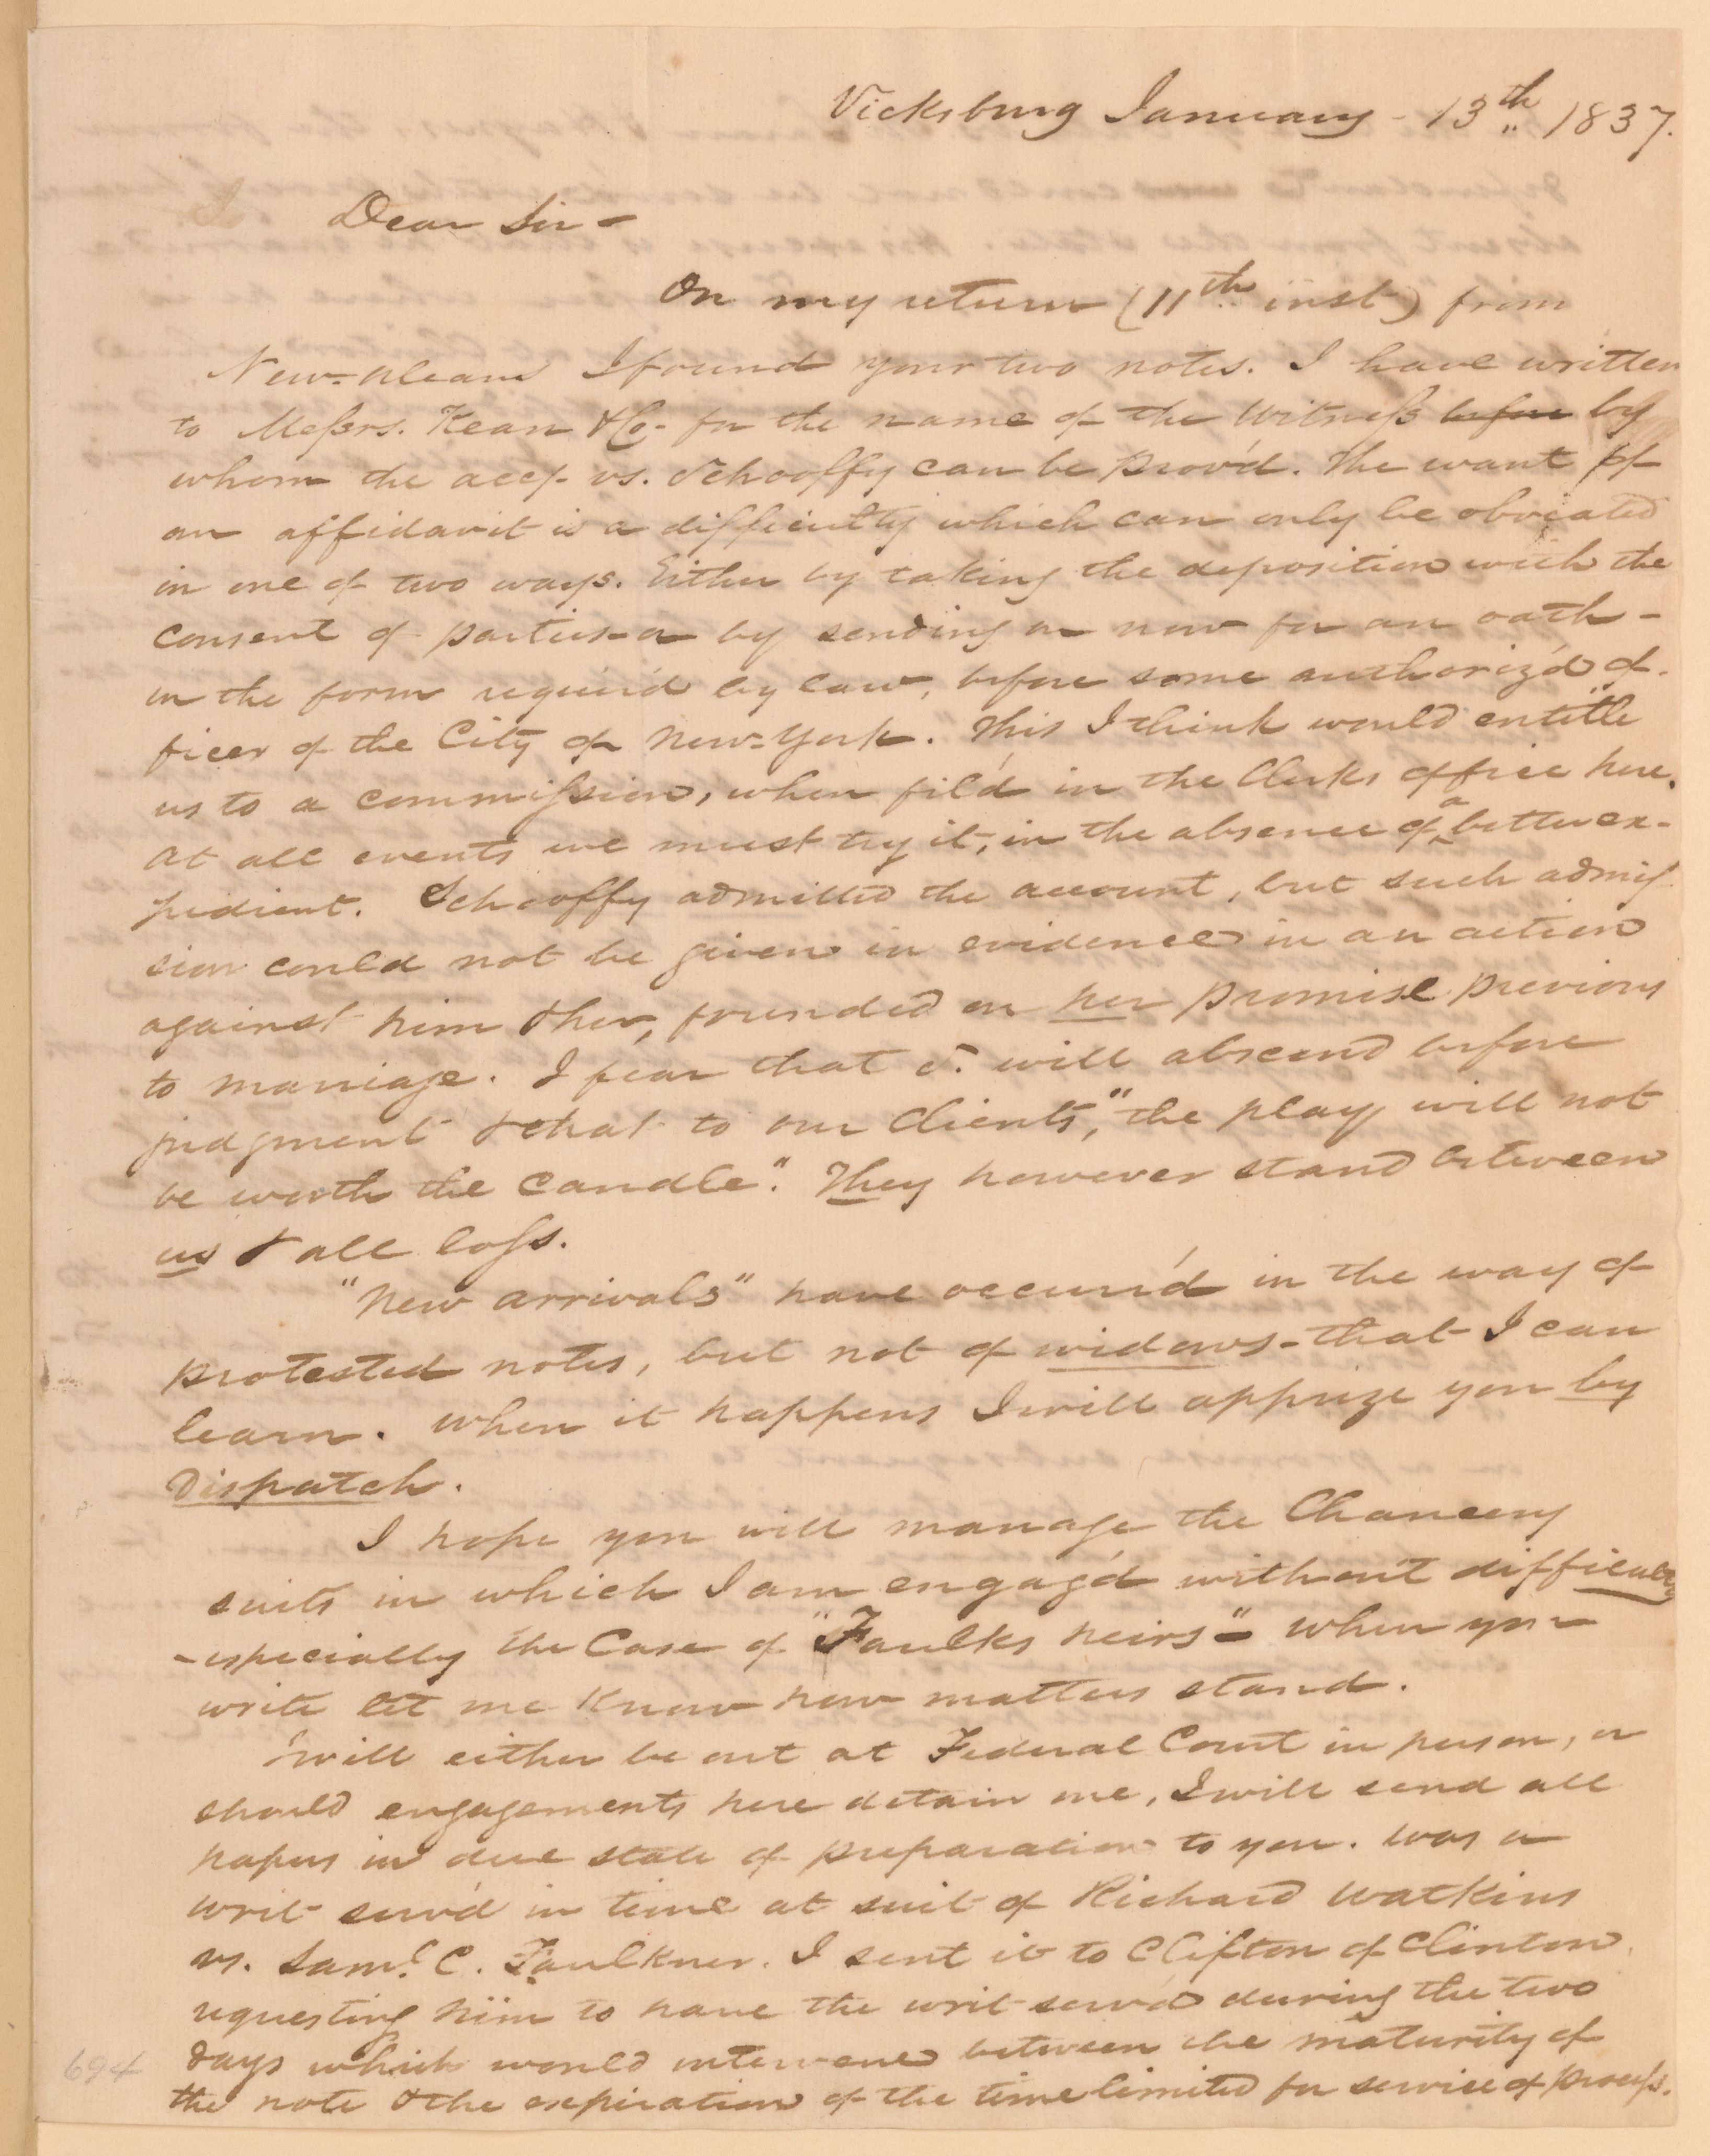 Vicksburg January - 13th 1837.
Dear Sir -
On my return (11th inst) from
New-Orleans I found your two notes. I have written
to Messrs. Kean & Co- for the name of the Witness before by
whom the accp. vs. Schooffy can be prov'd. The want of
an affidavit is a difficulty which can only be obviated
in one of two ways. Either by taking the deposition with the
consent of parties - or by sending on now for an oath -
in the form requir'd by law, before some authoriz'd of-
ficer of the City of New-York. This I think would entitle
us to a commission, when fil'd in the Clerks office here.
At all events we must try it, in the absence of a better ex-
pedient. Schooffy admitted the account, but such admis-
sion could not be given in evidence in an action
against him & her, founded on her promise previous
to marriage. I fear that S. will abscond before
judgment & that to our Clients, "the play will not
be worth the candle". They however stand between
us & all loss.
"New arrivals" have occurr'd in the way of
protested notes, but not of widows - that I can
learn. When it happens I will apprize you by
Dispatch.
I hope you will manage the Chancery
suits in which I am engag'd without difficulty
- especially the Case of "Faulks heirs" - When you
write let me know how matters stand.
I will either be out at Federal Court in person, or
should engagements here detain me, I will send all
papers in due state of preparation to you. Was a
writ serv'd in time at suit of Richard Watkins
vs. Saml. C. Faulkner. I sent it to Clifton of Clinton,
requesting him to have the writ serv'd during the two
days which would intervene between the maturity of
the note & the expiration of the time limited for service of process.
694